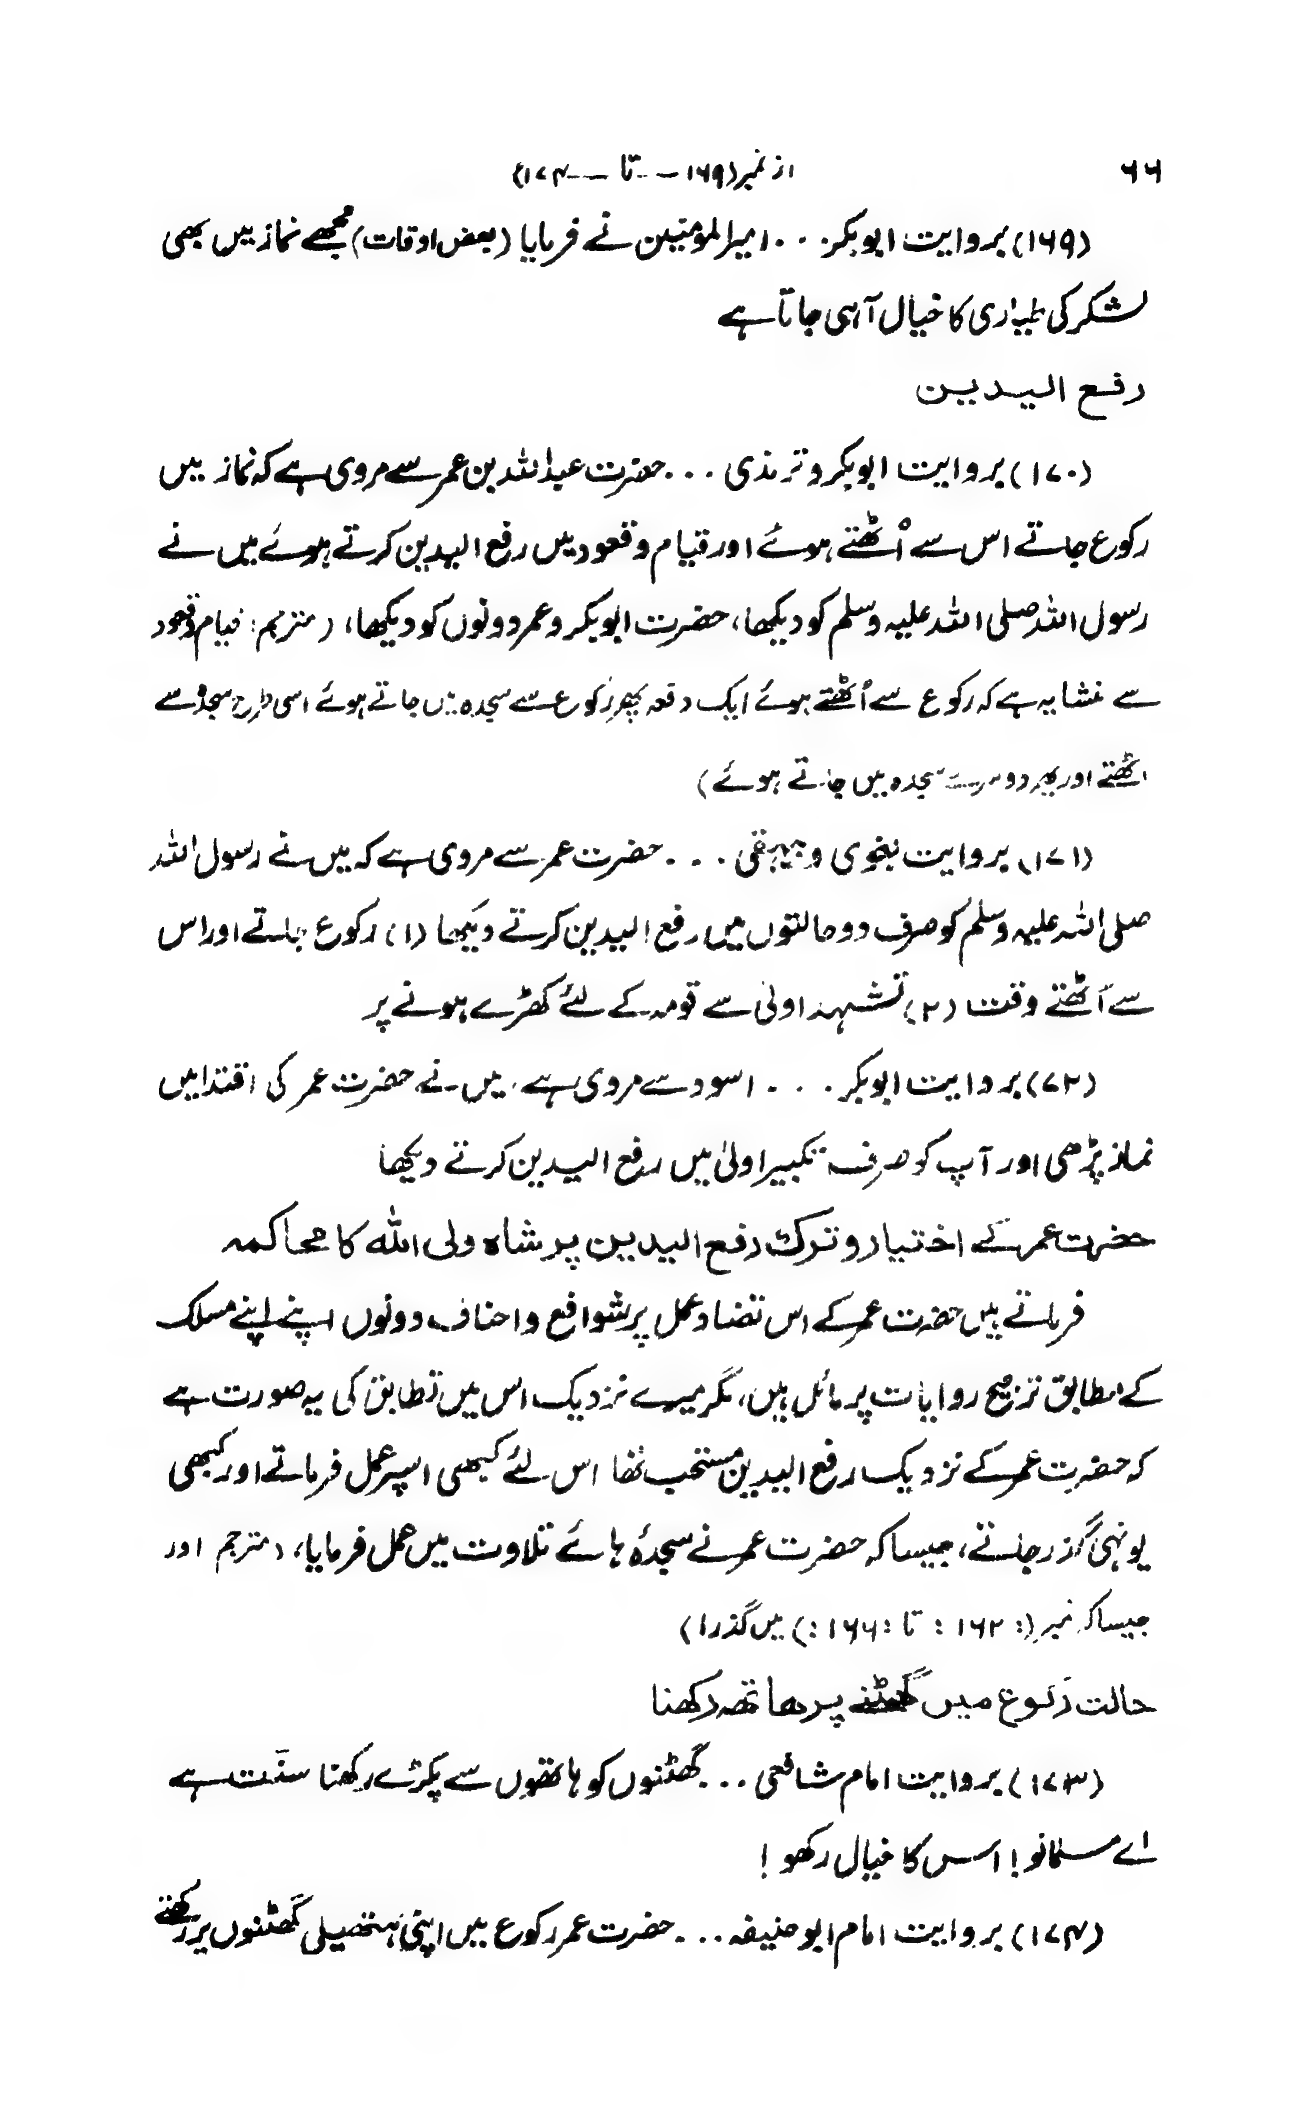 ۶۶ از نمبر (۱۶۹ -- تا -- ۱۷۴)
(۱۶۹) بروایت ابوبکر . . . امیرالمؤمنین نے فرمایا (بعض اوقات) مجھے نماز میں بھی
لشکر کی طیاری کا خیال آ ہی جاتا ہے
رفع الیدین
(۱۷۰) بروایت ابوبکر و ترمذی . . . حضرت عبداللہ بن عمر سے مروی ہے کہ نماز میں
رکوع جاتے اس سے اُٹھتے ہوئے اور قیام و قعود میں رفع الیدین کرتے ہوئے میں نے
رسول اللہ صلی اللہ علیہ وسلم کو دیکھا، حضرت ابوبکر و عمر دونوں کو دیکھا، (مترجم: قیام و قعود
سے منشا یہ ہے کہ رکوع سے اُٹھتے ہوئے ایک دفعہ پھر رکوع سے سجدہ میں جاتے ہوئے اسی طرح سجدہ سے
اٹھتے اور پھر دوسرے سجدہ میں جاتے ہوئے)
(۱۷۱) بروایت بغوی و بیہقی . . . حضرت عمر سے مروی ہے کہ میں نے رسول اللہ
صلی اللہ علیہ وسلم کو صرف دو حالتوں میں رفع الیدین کرتے دیکھا (۱) رکوع جاتے اور اس
سے اُٹھتے وقت (۲) تشہد اولیٰ سے قومہ کے لئے کھڑے ہونے پر
(۷۲) بروایت ابوبکر . . . اسود سے مروی ہے، میں نے حضرت عمر کی اقتدا میں
نماز پڑھی اور آپ کو صرف تکبیر اولیٰ میں رفع الیدین کرتے دیکھا
حضرت عمر کے اختیار و ترک رفع الیدین پر شاہ ولی اللہ کا محاکمہ
فرماتے ہیں حضرت عمر کے اس تضاد عمل پر شوافع و احناف دونوں اپنے اپنے مسلک
کے مطابق ترجیح روایات پر مائل ہیں، مگر میرے نزدیک اس میں تطابق کی یہ صورت ہے
کہ حضرت عمر کے نزدیک رفع الیدین مستحب تھا اس لئے کبھی اسپر عمل فرماتے اور کبھی
یونہی گذر جاتے، جیسا کہ حضرت عمر نے سجدۂ ہائے تلاوت میں عمل فرمایا، (مترجم اور
جیسا کہ نمبر (: ۱۶۲ : تا : ۱۶۶ :) میں گذرا)
حالت رکوع میں گھٹنے پر ہاتھ رکھنا
(۱۷۳) بروایت امام شافعی . . . گھٹنوں کو ہاتھوں سے پکڑے رکھنا سنّت ہے
اے مسلمانو! اس کا خیال رکھو!
(۱۷۴) بروایت امام ابوحنیفہ . . . حضرت عمر رکوع میں اپنی ہتھیلی گھٹنوں پر رکھتے